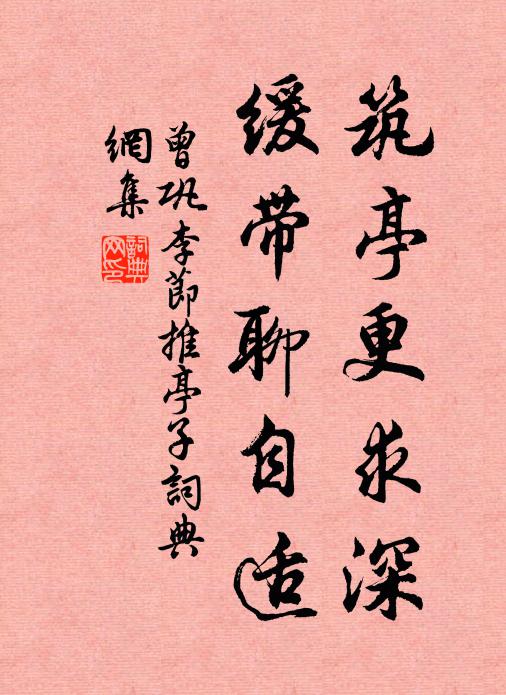 筑亭更求深
缓带聊自适
曾巩李節推亭子詞典
網集
詞典网印